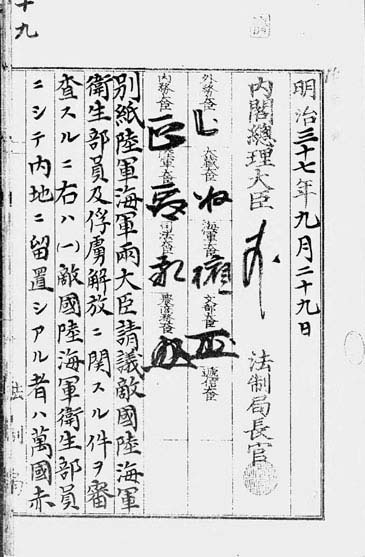 明治三十七年九月二十九日
内閣總理大臣
法制局長官
外務大臣
大藏大臣
海軍大臣
文部大臣
遞信大臣
内務大臣
陸軍大臣
司法大臣
農商務大臣
別紙陸軍海軍兩大臣請議敵國陸海軍
衛生部員及俘虜解放ニ関スル件ヲ審
査スルニ右ハ(一)敵國陸海軍衛生部員
ニシテ内地ニ留置シアル者ハ萬國赤
法制局
十九